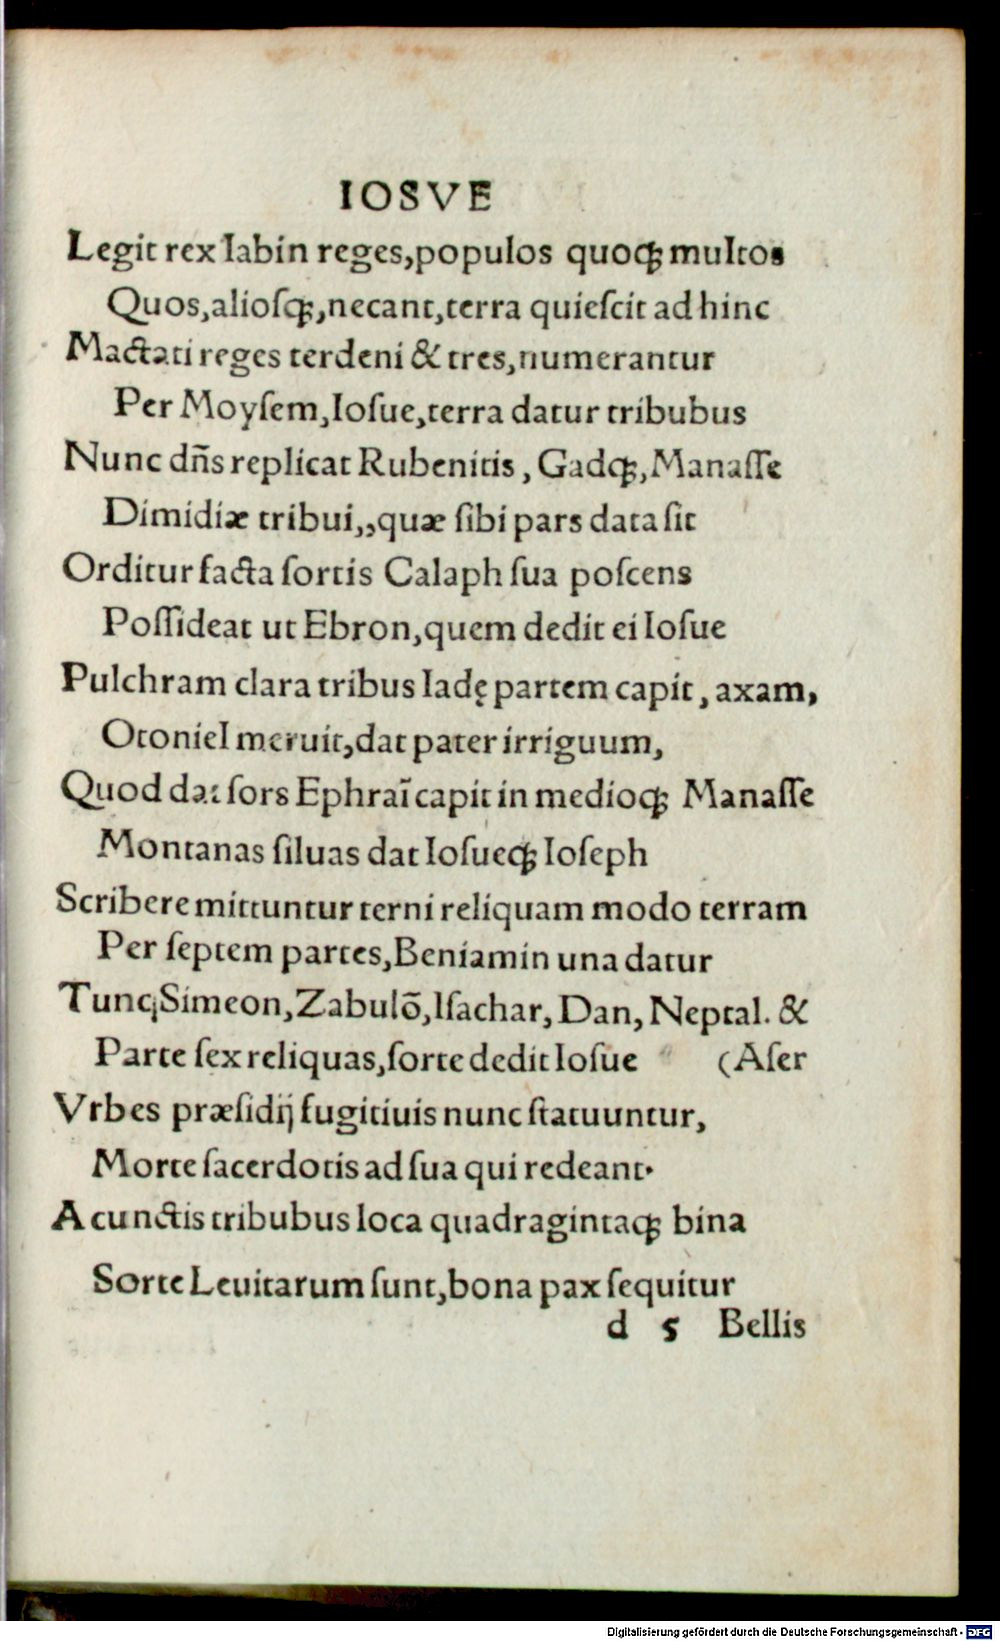 IOSVE
Legit rex Iabin reges,populos quoqꝫ multos
Quos,aliosqꝫ,necant,terra quieſcit ad hinc
Mactati reges terdeni & tres,numerantur
Per Moyſem,Ioſue,terra datur tribubus
Nunc dn̄s replicat Rubenitis, Gadqꝫ,Manaſſe
Dimidiæ tribui,,quæ ſibi pars data ſit
Orditur facta ſortis Calaph ſua poſcens
Poſſideat ut Ebron,quem dedit ei Ioſue
Pulchram clara tribus Iadę partem capit, axam,
Otoniel meruit,dat pater irriguum,
Quod dat ſors Ephraī capit in medioqꝫ Manaſſe
Montanas ſiluas dat Ioſueqꝫ Ioſeph
Scribere mittuntur terni reliquam modo terram
Per ſeptem partes,Beniamin una datur
Tuncꝗ Simeon,Zabulō,Iſachar, Dan, Neptal. &
Parte ſex reliquas,ſorte dedit Ioſue (Aſer
Vrbes præſidij fugitiuis nunc ſtatuuntur,
Morte ſacerdotis ad ſua qui redeant·
A cunctis tribubus loca quadragintaqꝫ bina
Sorte Leuitarum ſunt,bona pax ſequitur
d 5 Bellis
Digitalisierung gefördert durch die Deutsche Forschungsgemeinschaft - DFG